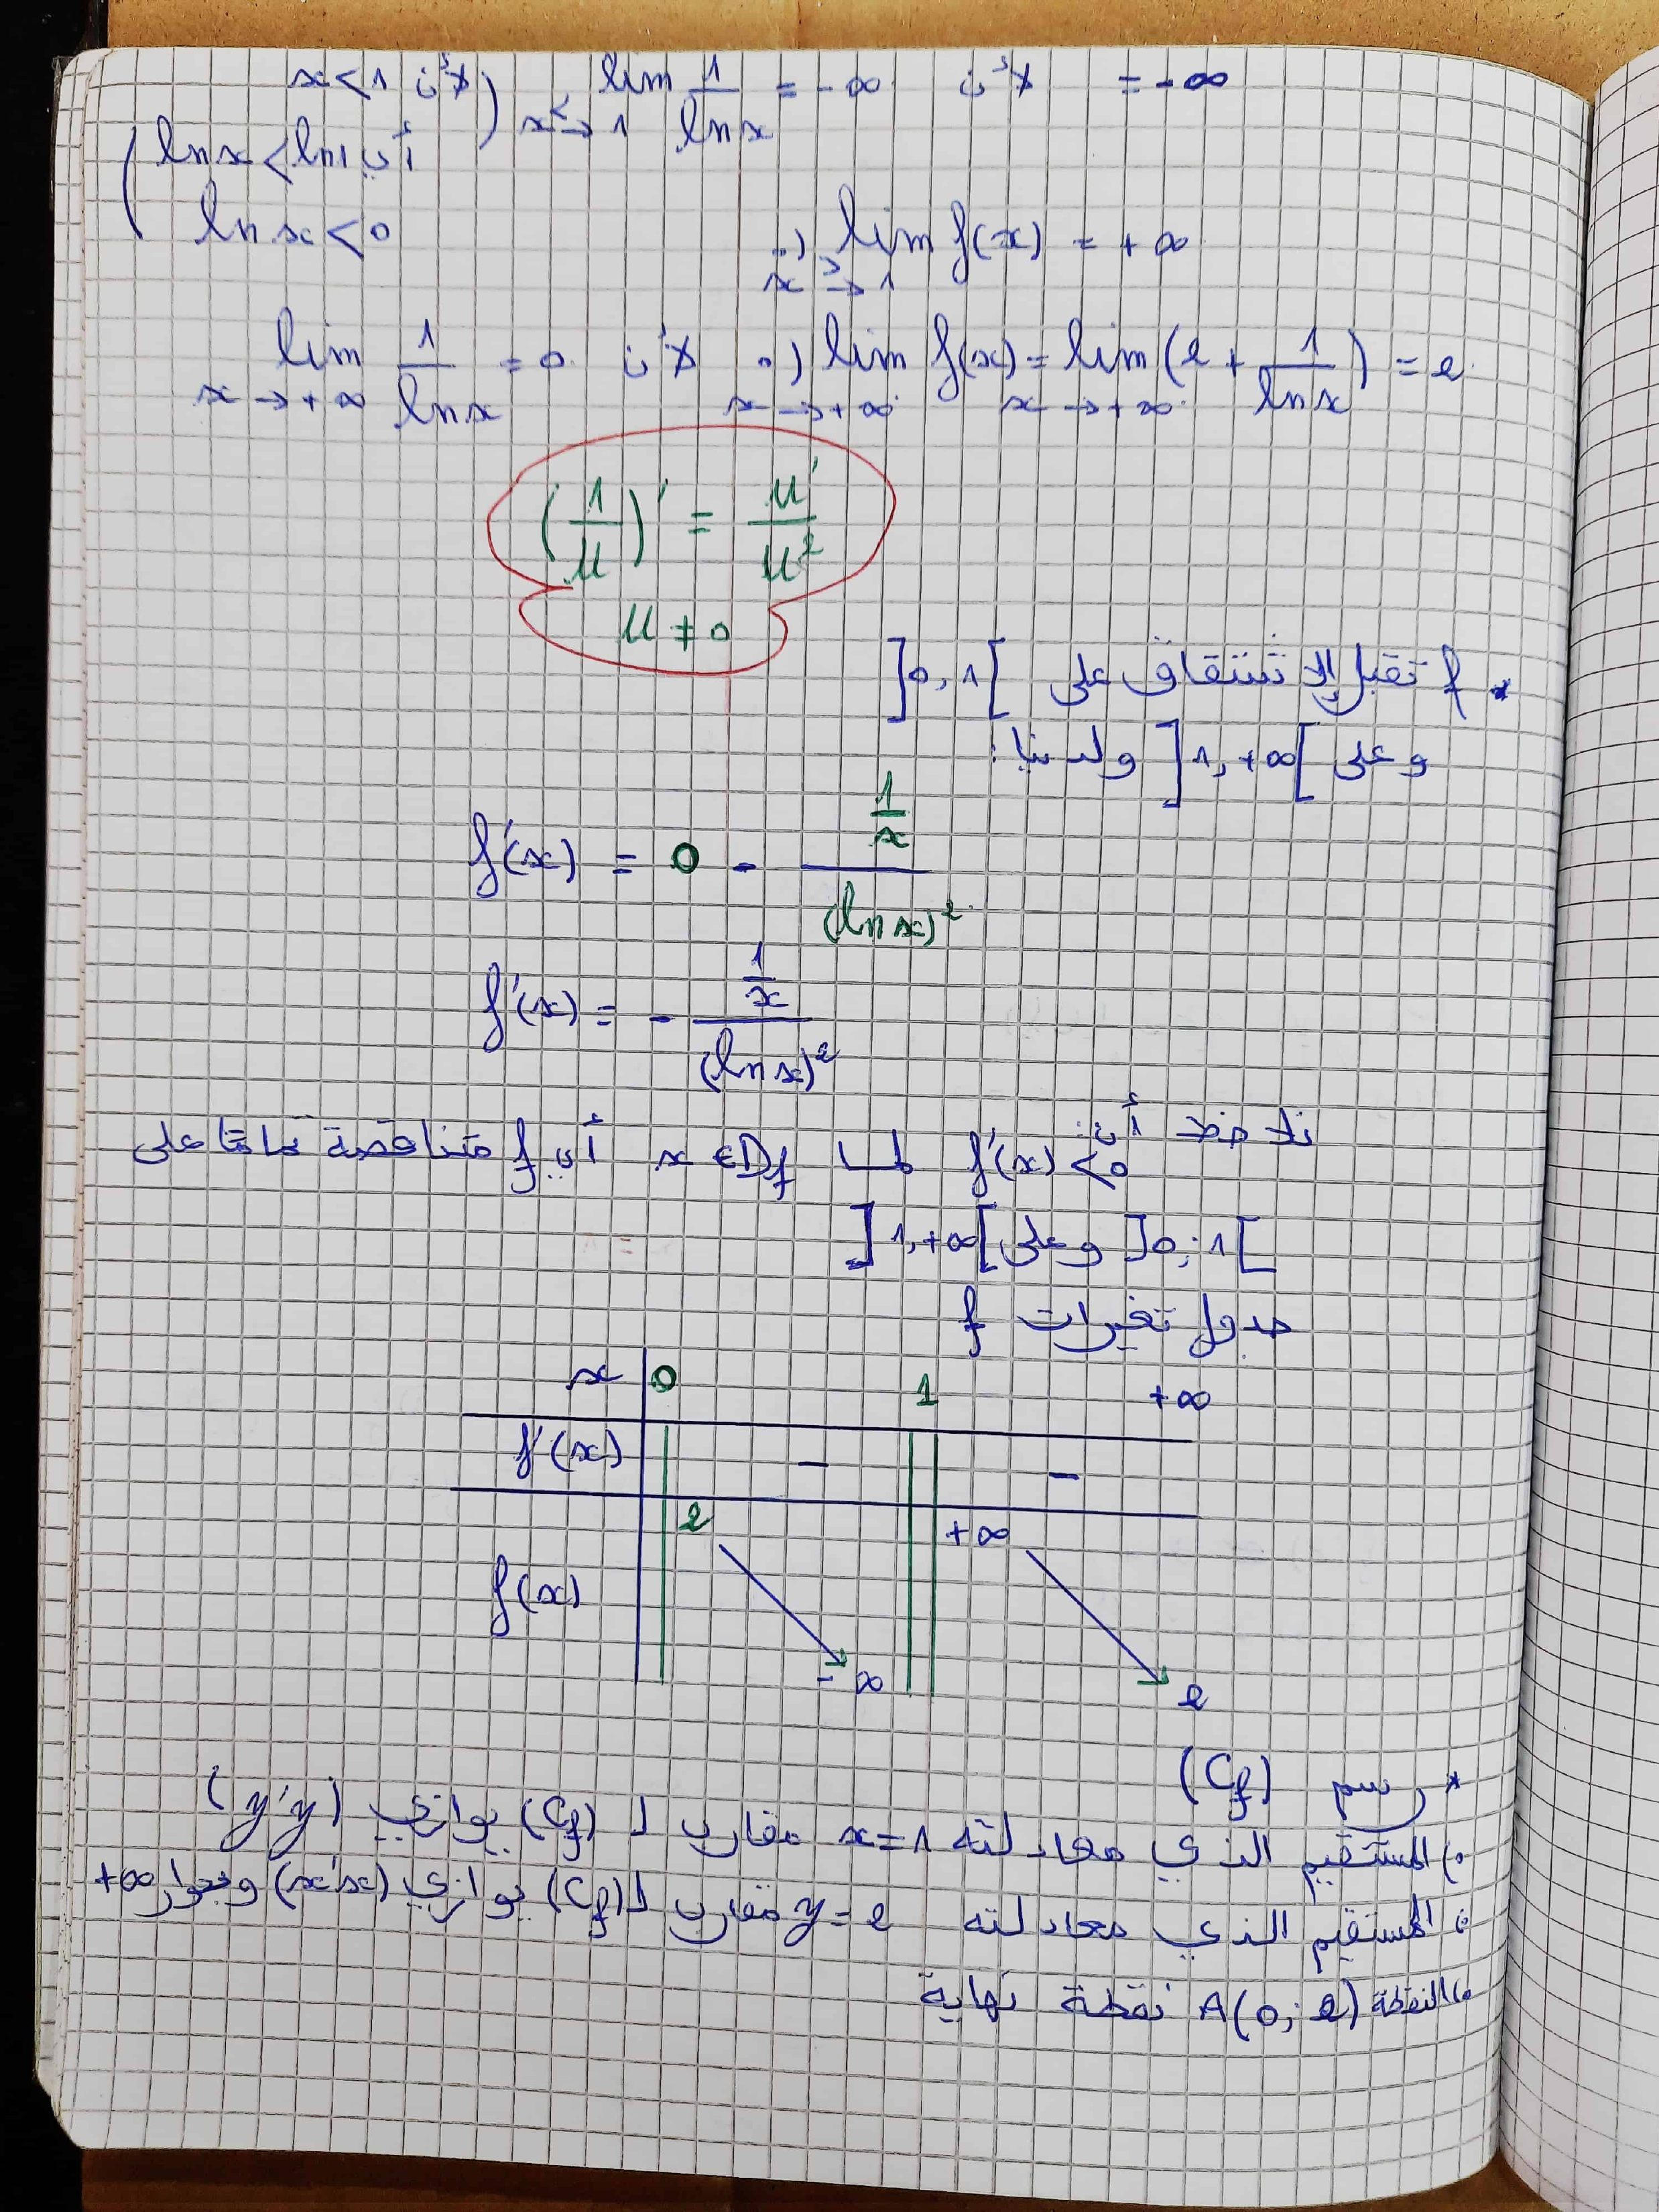 = -∞ لأن lim 1/ln x = -∞ x→<1 (لأن x<1
أي ln x < ln 1
ln x < 0)
•) lim f(x) = +∞ x→>1
•) lim f(x) = lim (2 + 1/ln x) = 2 x→+∞ x→+∞ لأن lim 1/ln x = 0 x→+∞
(1/u)' = u'/u²
u ≠ 0
* f تقبل الإشتقاق على ]0,1[
وعلى ]1,+∞[ ولدينا:
f'(x) = 0 - (1/x)/(ln x)²
f'(x) = - (1/x)/(ln x)²
نلاحظ أن: f'(x) < 0 لما x ∈ Df أي f متناقصة تماما على
]0;1[ وعلى ]1,+∞[
جدول تغيرات f
x 0 1 +∞
f'(x) - -
f(x) 2 -∞ +∞ 2
* رسم (Cf)
•) المستقيم الذي معادلته x=1 مقارب لـ (Cf) يوازي (y'y)
•) المستقيم الذي معادلته y=2 مقارب لـ (Cf) يوازي (x'x) وبجوار +∞
•) النقطة A(0;2) نقطة نهاية